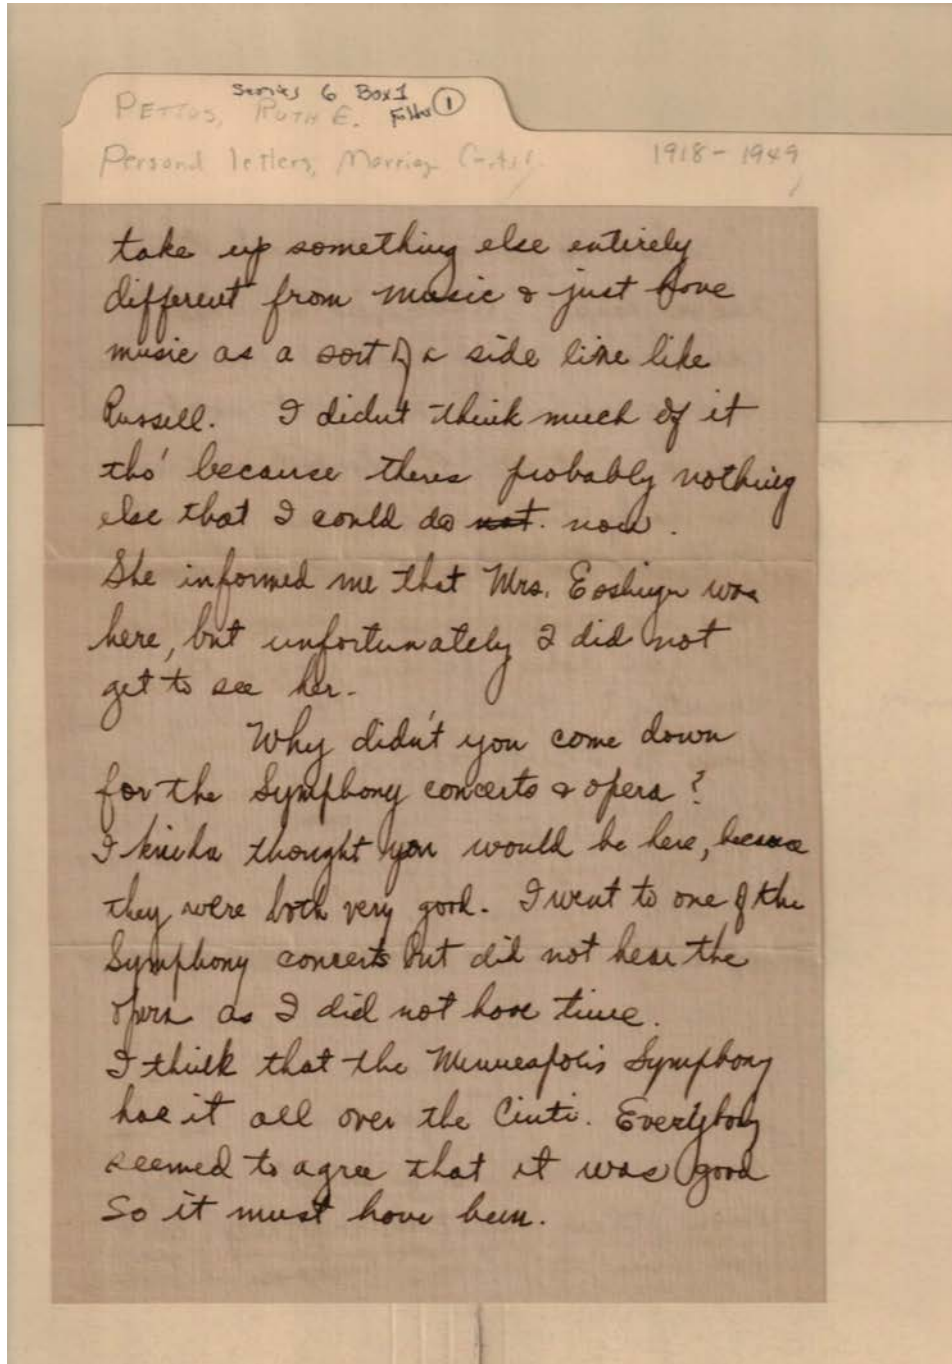 Series 6 Box 1
PETTUS, RUTH E. Folder 1
Personal letters, Marriage Certif. 1918-1949
take up something else entirely
different from music & just have
music as a sort of a side line like
Russell. I didnt think much of it
tho' because theres probably nothing
else that I could do not. now.
She informed me that Mrs. was
here, but unfortunately I did not
get to see her.
Why didn't you come down
for the Symphony concerts & opera?
I kinda thought you would be here, because
they were both very good. I went to one of the
Symphony concerts but did not hear the
opera as I did not have time.
I think that the Minneapolis Symphony
has it all over the Cinti. Everybody
seemed to agree that it was good
So it must have been.